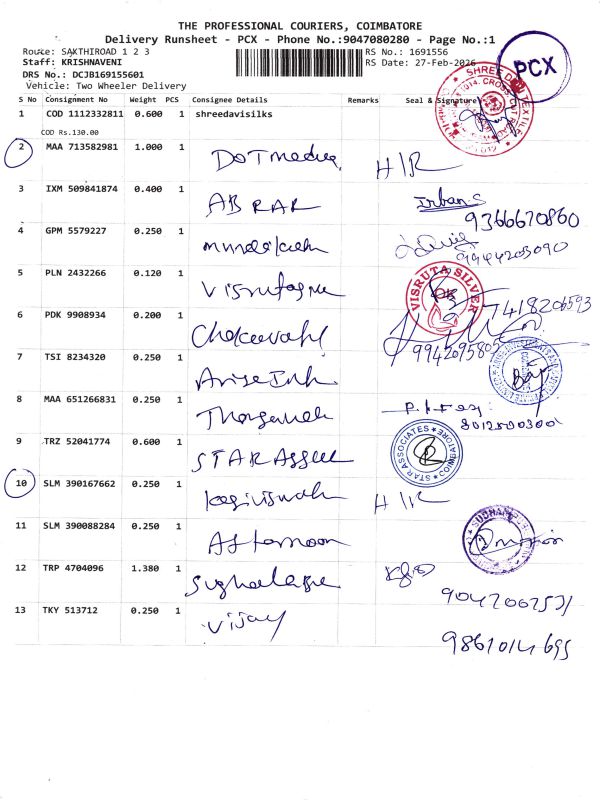 THE PROFESSIONAL COURIERS, COIMBATORE
Delivery Runsheet - PCX - Phone No.:9047080280 - Page No.:1
Route: SAKTHIROAD 1 2 3
RS No.: 1691556
Staff: KRISHNAVENI
RS Date: 27-Feb-2026
PCX
DRS No.: DCJB169155601
Vehicle: Two Wheeler Delivery
S No Consignment No Weight PCS Consignee Details Remarks Seal & Signature
1 COD 1112332811 0.600 1 shreedavisilks
COD Rs.130.00
2 MAA 713582981 1.000 1 DOT media H/R
3 IXM 509841874 0.400 1 ABRAR Irban.S
9366670860
4 GPM 5579227 0.250 1
9944203090
5 PLN 2432266 0.120 1 VISRUTA SILVER
7418206593
6 PDK 9908934 0.200 1
7 TSI 8234320 0.250 1 Arise Ink
8 MAA 651266831 0.250 1
9 TRZ 52041774 0.600 1 STAR Assoc STAR ASSOCIATES COIMBATORE
10 SLM 390167662 0.250 1 H/R
11 SLM 390088284 0.250 1 Afternoon
12 TRP 4704096 1.380 1
9047007531
13 TKY 513712 0.250 1 Vijay
9861014695